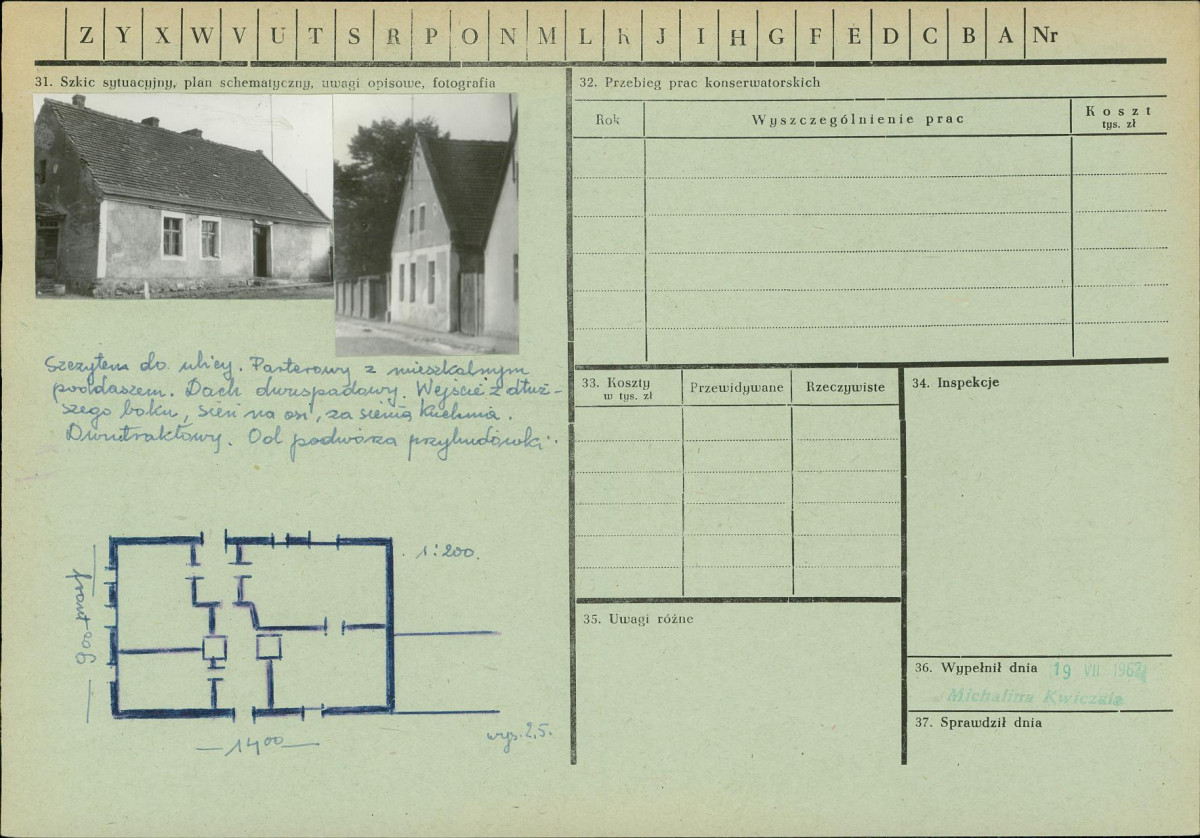 Z Y X W V U T S R P O N M L K J I H G F E D C B A Nr
31. Szkic sytuacyjny, plan schematyczny, uwagi opisowe, fotografia
Szczytem do ulicy. Parterowy z mieszkalnym
poddaszem. Dach dwuspadowy. Wejście z dłuż-
szego boku, sień na osi, za sienią kuchnia.
Dwutraktowy. Od podwórza przybudówki.
1:200.
900 front
1400
wys. 2,5.
32. Przebieg prac konserwatorskich
Rok
Wyszczególnienie prac
Koszt
tys. zł
33. Koszty
w tys. zł
Przewidywane
Rzeczywiste
34. Inspekcje
35. Uwagi różne
36. Wypełnił dnia 19 VII 1967
Michalina Kwiczala
37. Sprawdził dnia